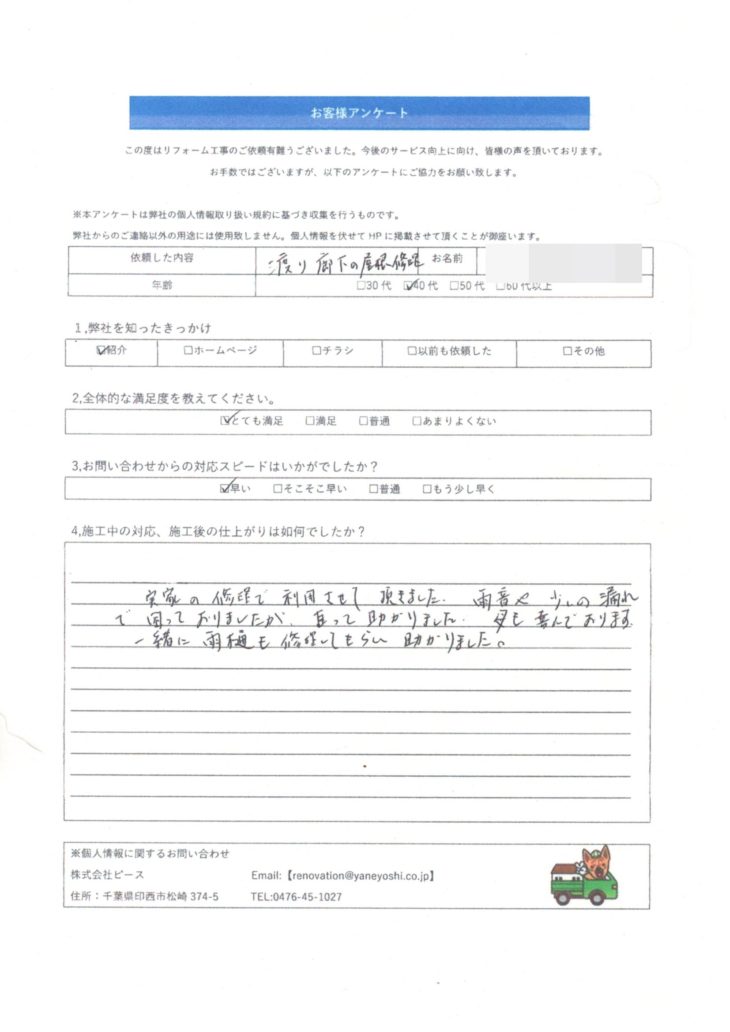 お客様アンケート
この度はリフォーム工事のご依頼有難うございました。今後のサービス向上に向け、皆様の声を頂いております。
お手数ではございますが、以下のアンケートにご協力をお願い致します。
※本アンケートは弊社の個人情報取り扱い規約に基づき収集を行うものです。
弊社からのご連絡以外の用途には使用致しません。個人情報を伏せて HP に掲載させて頂くことが御座います。
依頼した内容 渡り廊下の屋根修理 お名前
年齢 □30 代 ☑40 代 □50 代 □60 代以上
1,弊社を知ったきっかけ
☑紹介 □ホームページ □チラシ □以前も依頼した □その他
2,全体的な満足度を教えてください。
☑とても満足 □満足 □普通 □あまりよくない
3,お問い合わせからの対応スピードはいかがでしたか？
☑早い □そこそこ早い □普通 □もう少し早く
4,施工中の対応、施工後の仕上がりは如何でしたか？
実家の修理で利用させて頂きました。雨音や少しの漏れ
で困っておりましたが、直って助かりました。母も喜んでおります。
一緒に雨樋も修理してもらい助かりました。
※個人情報に関するお問い合わせ
株式会社ピース Email:【renovation@yaneyoshi.co.jp】
住所：千葉県印西市松崎 374-5 TEL:0476-45-1027